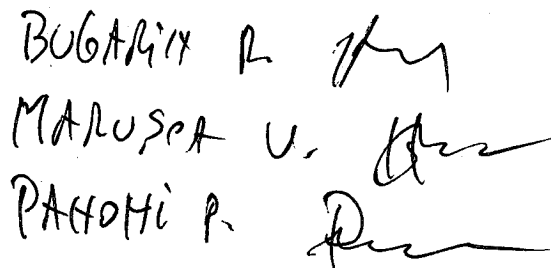 BUGARIN R.
MARUSCA V.
PAHOMI P.